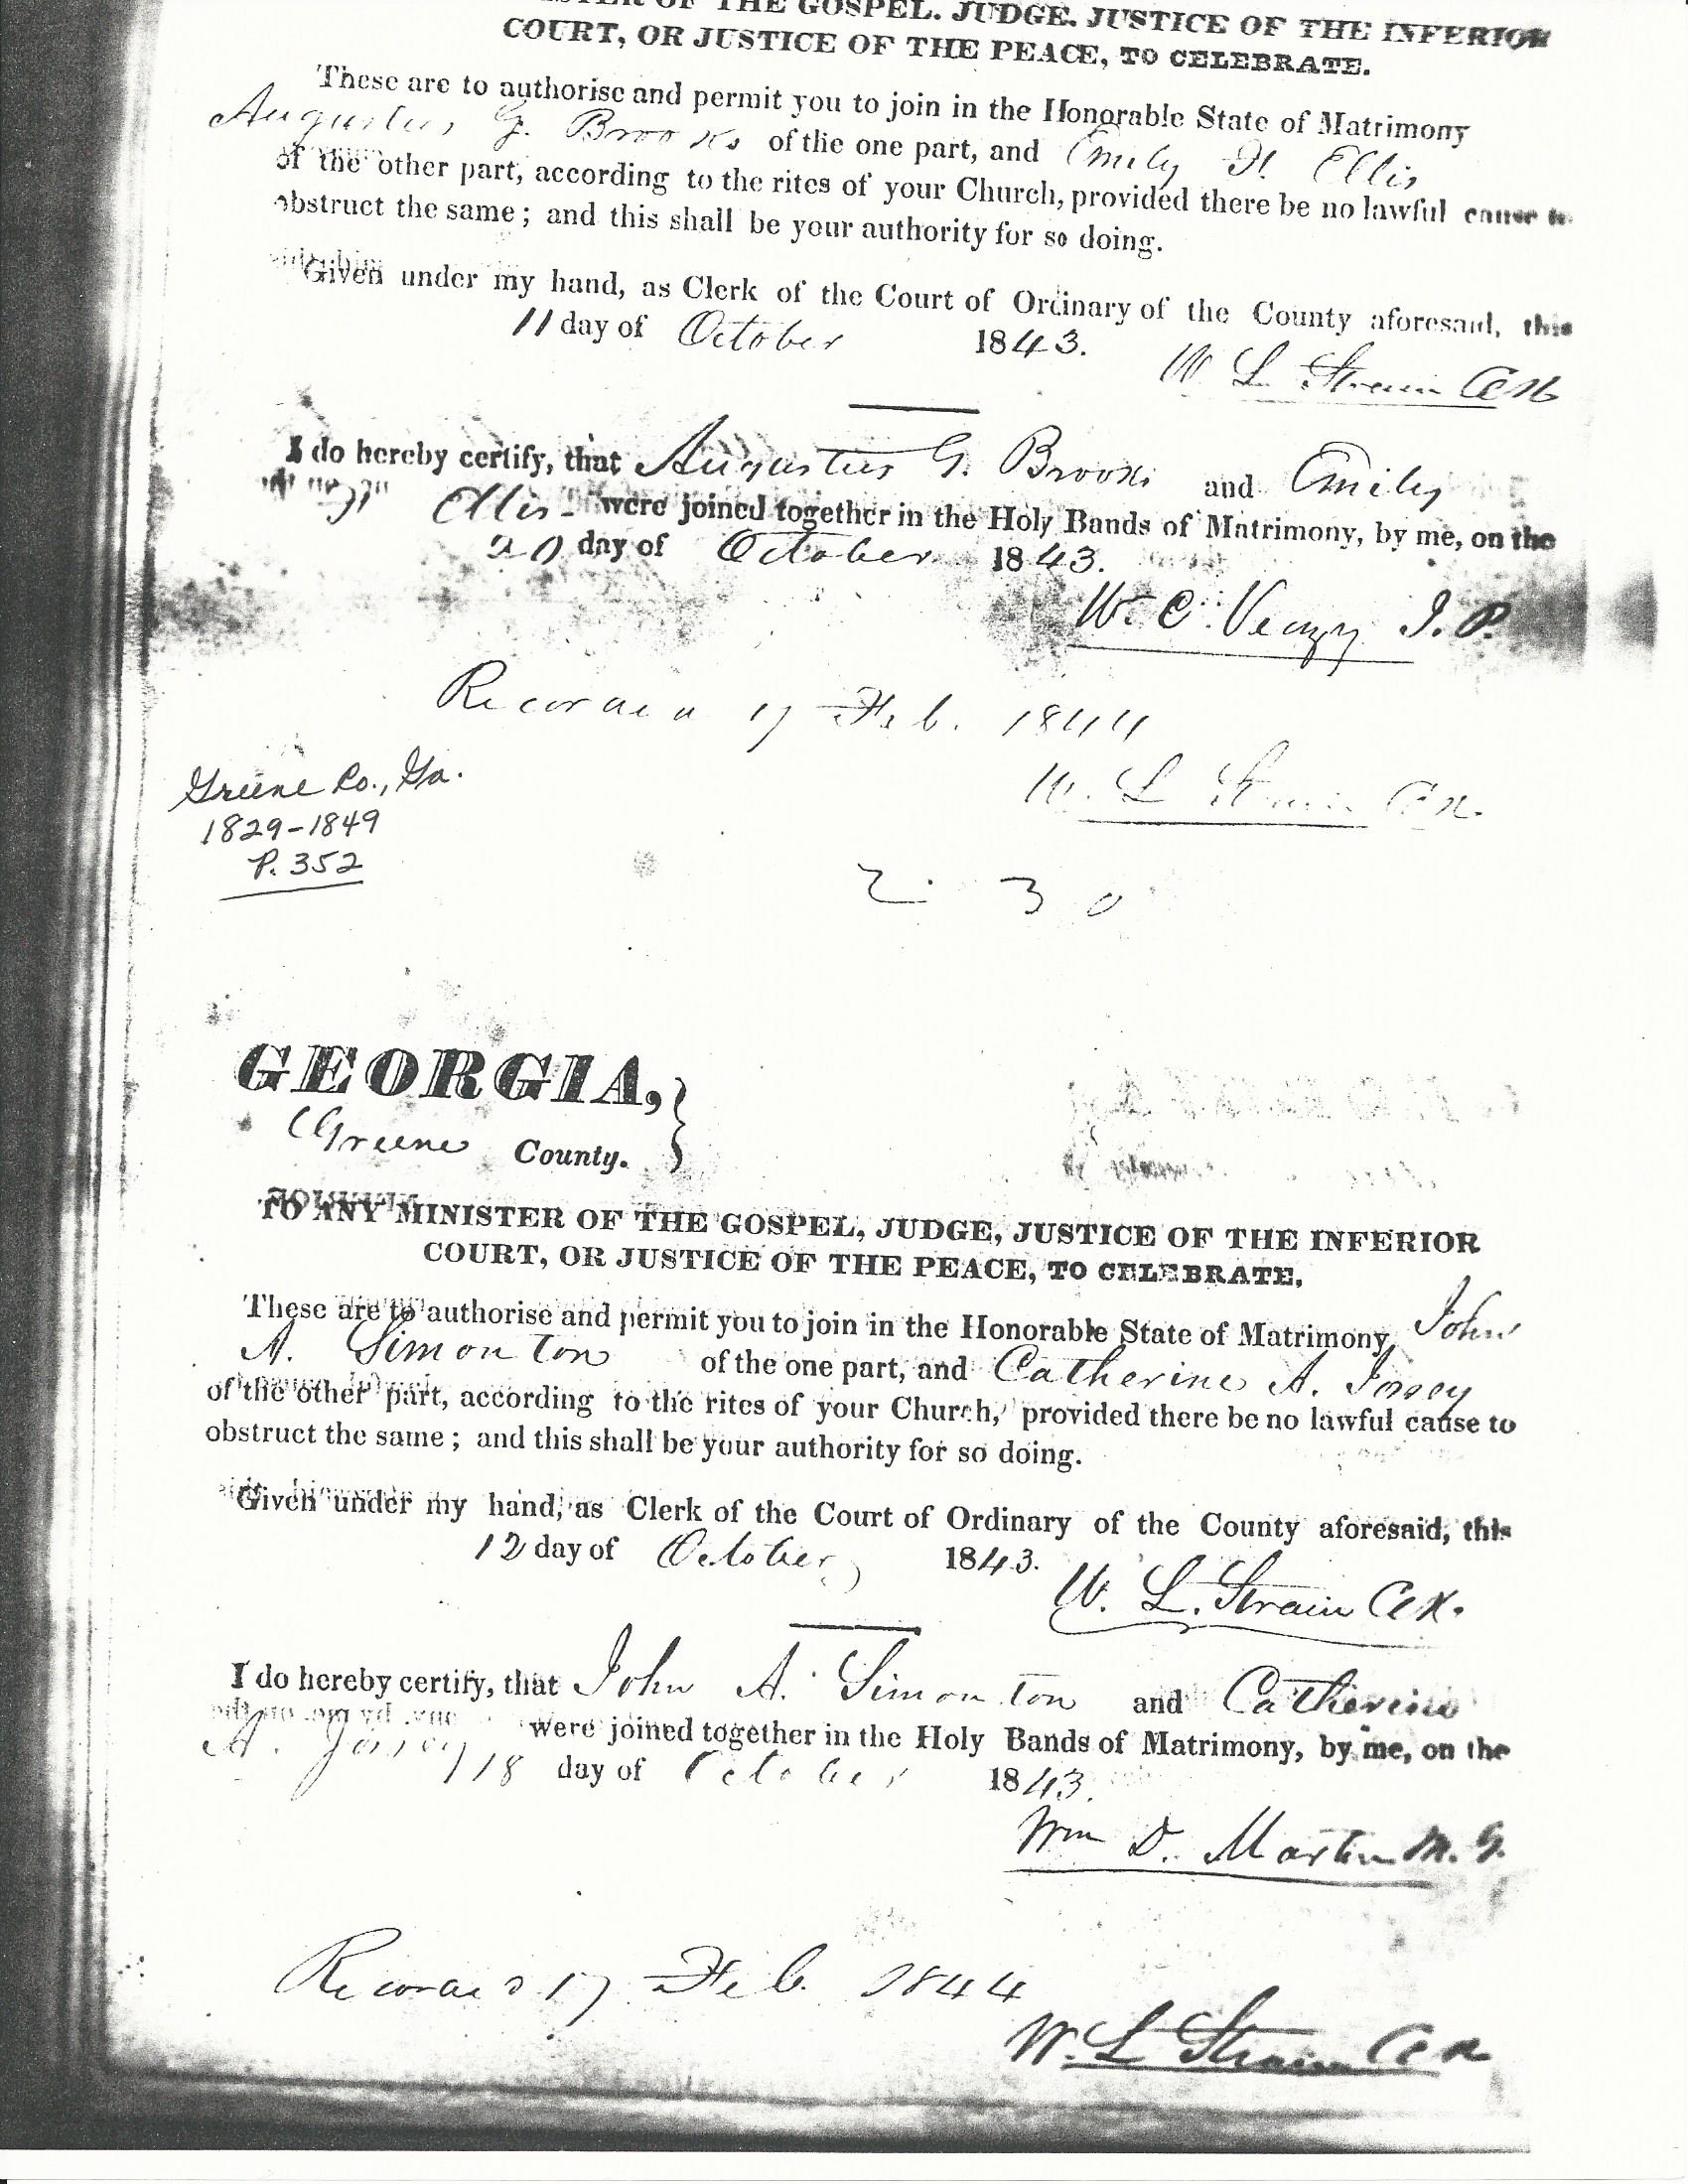 MINISTER OF THE GOSPEL. JUDGE. JUSTICE OF THE INFERIOR
COURT, OR JUSTICE OF THE PEACE, TO CELEBRATE.
These are to authorise and permit you to join in the Honorable State of Matrimony
Augustus G. Brooks of the one part, and Emily H. Ellis
of the other part, according to the rites of your Church, provided there be no lawful cause to
obstruct the same; and this shall be your authority for so doing.
Given under my hand, as Clerk of the Court of Ordinary of the County aforesaid, this
11 day of October 1843.
W L Strain
I do hereby certify, that Augustus G. Brooks and Emily
Ellis were joined together in the Holy Bands of Matrimony, by me, on the
20 day of October 1843.
W. C. Veazy J. P.
Recorded 17 Feb. 1844
W. L Strain
Greene Co., Ga.
1829-1849
P. 352
2. 30
GEORGIA,
Greene County.
TO ANY MINISTER OF THE GOSPEL, JUDGE, JUSTICE OF THE INFERIOR
COURT, OR JUSTICE OF THE PEACE, TO CELEBRATE.
These are to authorise and permit you to join in the Honorable State of Matrimony John
A. Simonton of the one part, and Catherine A. Jossey
of the other part, according to the rites of your Church, provided there be no lawful cause to
obstruct the same; and this shall be your authority for so doing.
Given under my hand, as Clerk of the Court of Ordinary of the County aforesaid, this
12 day of October 1843.
W. L. Strain
I do hereby certify, that John A. Simonton and Catherine
A. Jossey were joined together in the Holy Bands of Matrimony, by me, on the
18 day of October 1843.
Wm D. Martin M. G.
Recorded 17 Feb. 1844
W. L Strain